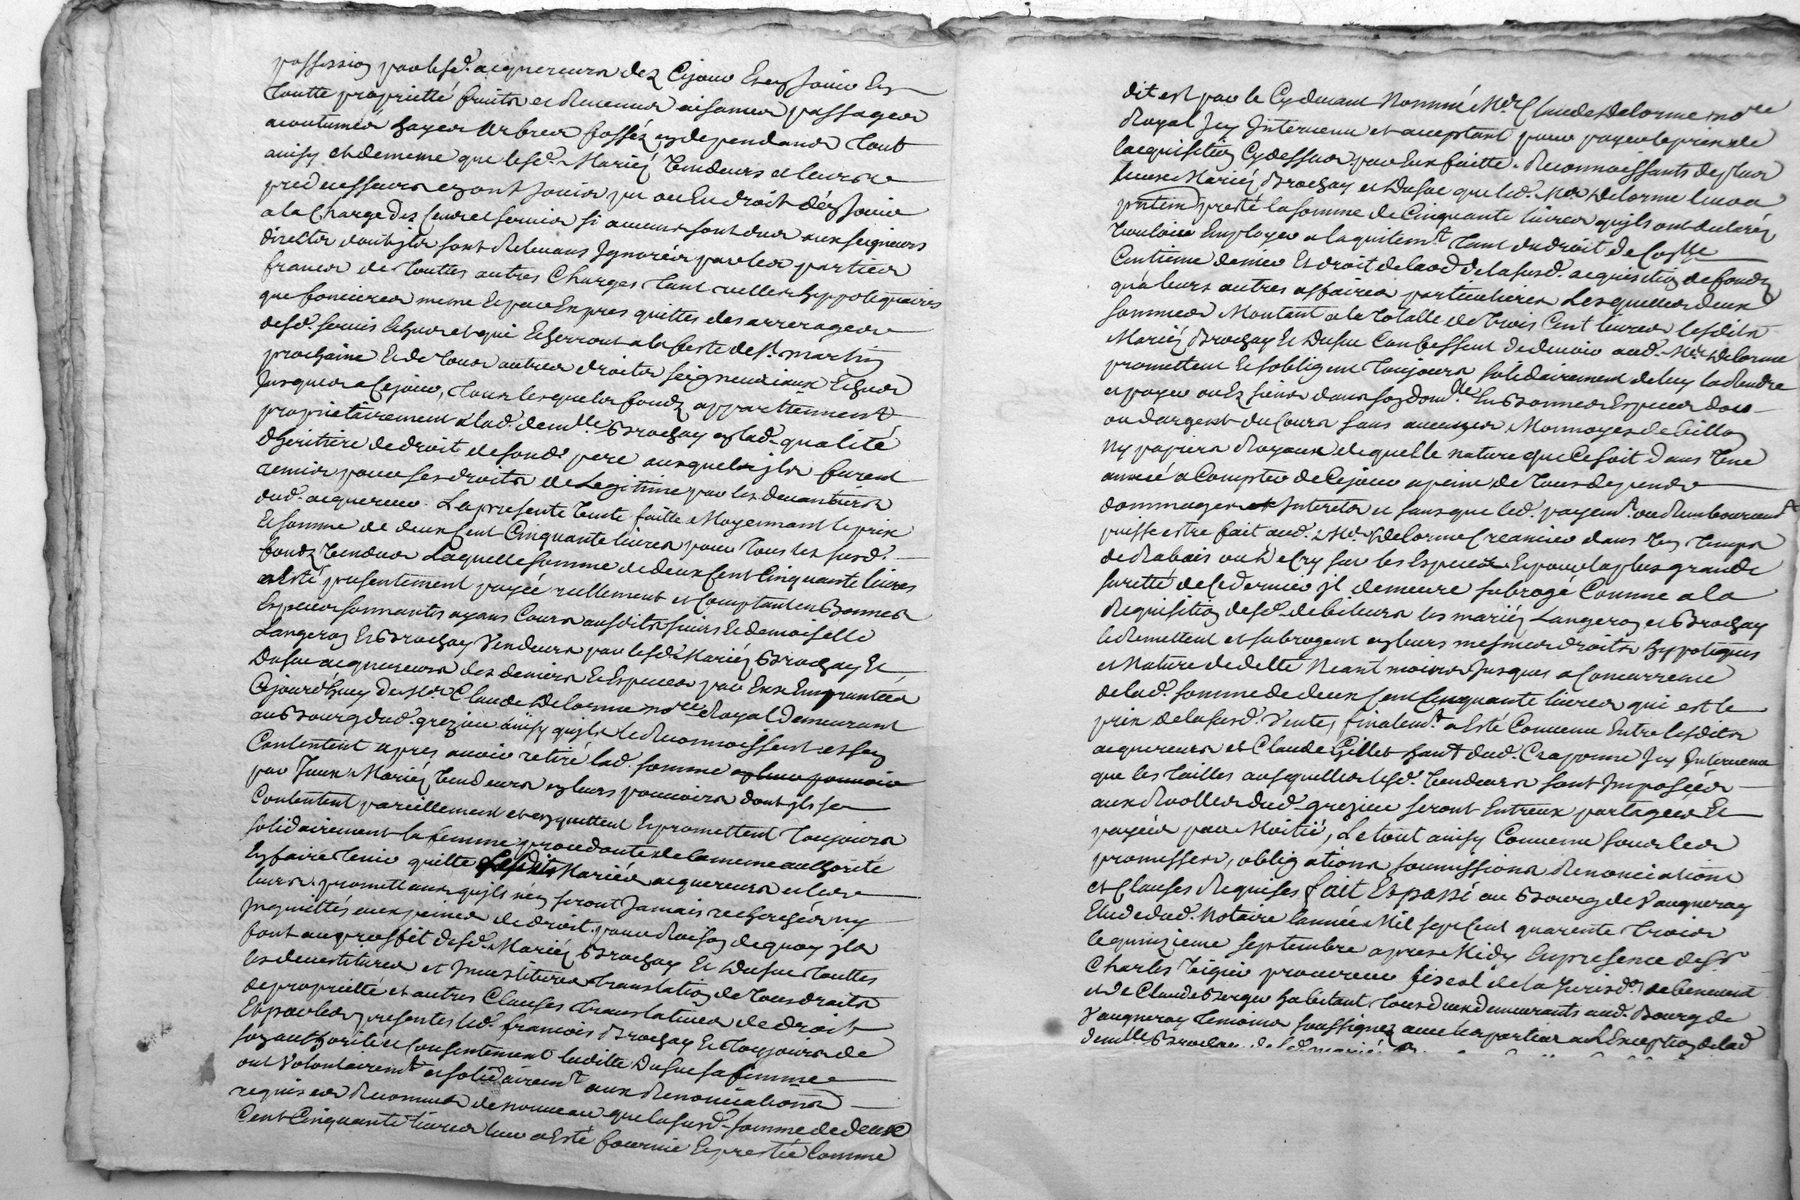 possession par lesd. acquereurs dez Cejour En jouir En
Toutte proprietté fruits et Revenus aisances passages
acoutumés hayes Arbres fossés en dependans Tout
ainsy et dememe que lesd. Mariéz Vendeurs et leurs
predecesseurs en ont jouis ou eu droit d'en jouir
a la Charge des Cens et servis si aucuns sont dus aux seigneurs
directes dont ils sont Relevans Ignorés par les parties
francs de Touttes autres Charges tant reelles hypotequaires
que foncieres meme Et par Exprés quittes des arrerages
desd. servis Echus et qui Echerront a la feste de St. martin
prochaine Et de Tous autres droits seigneuriaux Echus
Jusques a Cejour, Tous lesquels fonds appartiennent
proprietairement a lad. demlle Brochay en lad. qualité
dheritiere de droit de fond. pere ausquels ils furent
remis pour ses droits de Legitime par les devantiers
dud. acquereur. La presente Vente faitte Moyennant le prix
Et somme de deux Cent Cinquante livres pour Tous les susd.
fonds Vendus Laquelle somme de deux Cent Cinquante livres
a Esté presentement payée reellement et Comptant en Bonnes
Especes sonnantes ayans Cours ausdits sieurs Et demoiselle
Langeron Et Brochay Vendeurs par lesd. Mariéz Brochay Et
Dusuc acquereurs des deniers Et Especes par Eux Empruntées
Cejourd'huy du Sr Claude Delorme nore Royal Demeurant
au Bourg dud. grezieu ainsy qu'ils le Reconnoissent et sen
Contentent apres avoir retiré lad. somme
par Iceux Mariéz Vendeurs en leurs pouvoirs dont ils se
Contentent pareillement et en quittent Et promettent Toujours
solidairement la femme procedante de la meme authorité
En faire Tenir quitte lesdits Mariés acquereurs et les
leurs promettans qu'ils n'en seront Jamais recherchés ny
Inquiettés aux peines de droit. pour Raison de quoy ils
font au proffit desd. Mariéz Brochay Et Dusuc Touttes
les devestitures et Investitures translation de Tous droits
de proprietté et autres Clauses Translatives de droit
Et par les presentes led. francois Brochay Et Toujours de
son authorité et Consentement laditte Dusuc sa femme
ont Volontairemt. et solidairemt. aux Renonciations
requises Reconnu de nouveau que la susd. somme de deux
Cent Cinquante livres leur a Esté fournie Et prestée Comme
dit est par le Cydevant Nommé Mr. Claude Delorme nore
Royal Icy Intervenu et acceptant pour payer le prix de
lacquisition Cydessus par Eux faitte. Reconnoissants de plus
Iceux Mariéz Brochay et Dusuc que led. Mr. Delorme leur a
presté la somme de Cinquante livres qu'ils ont declaré
Vouloir Employer a la quitemt. Tant du droit de
Centieme denier Et droit de de la susd. acquisition de fonds
qu'a leurs autres affaires particulieres Lesquelles deux
sommes Montent a la Totalle de Trois Cent livres lesdits
Mariéz Brochay Et Dusuc Confessent de devoir aud. Mr. Delorme
promettent Et sobligent Toujours solidairement de luy la Rendre
et payer ou Es siens dans son domlle En Bonnes Especes dor
ou dargent du Cours sans aucunes Monnoyes de billon
Ny papiers Royaux de quelle nature que Ce soit dans Une
année a Compter de Cejour a peine de Tous depends
dommages et Interets et sans que led. payemt. ou Remboursemt.
puisse estre fait aud. Mr. Delorme Creancier dans Un Temps
de Rabais ou de Cry sur les Especes Et pour la plus grande
suretté de Ce dernier il demeure subrogé Comme a la
Requisition desd. debiteurs les mariéz Langeron et Brochay
le Remettent et subrogent en leurs mesmes droits hypoteques
et Nature de dette Neant moins Jusques a Concurrence
de lad. somme de deux Cent Cinquante livres qui est le
prix de la susd. Vente, finalemt. a Esté Convenu Entre lesdits
acquereurs et Claude Gillet hant. dud. Craponne Icy Intervenu
que les Tailles ausquelles lesd. Vendeurs sont Imposées
aux Rolles dud. grezieu seront Entreux partagées Et
payées par Moitié, Le tout ainsy Convenu sous les
promesses, obligations soumissions Renonciations
et Clauses Requises fait Et passé au Bourg de Vaugneray
Etude dud. Notaire lannée Mil sept Cent quarente Trois
le quinzieme septembre apres Midy En presence de Sr
Charles procureur fiscal de la Jurisdon. de benevent
et de Claude Berger habitant Tous deux demeurants aud. Bourg de
Vaugneray Temoins soussignez avec les parties a l'Exception de lad.
demlle Brochay